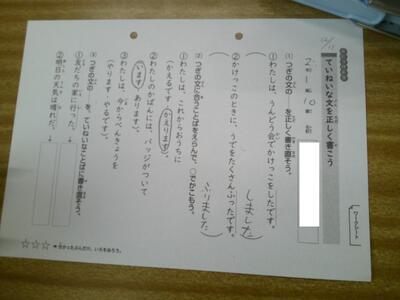 12/11
ていねいな文を正しく書こう
ワークシート
2年1組10番
(1) つぎの文の＿＿を正しく書き直そう。
①わたしは、うんどう会でかけっこをしたです。
(しました)
②かけっこのときに、うでをたくさんふったです。
(ふりました)
(2) つぎの文に合うことばをえらんで、○でかこもう。
①わたしは、これからおうちに
(かえるです・かえります)。
②わたしのかばんには、バッジがついて
(います・あります)。
③わたしは、今からべんきょうを
(やります・やるです)。
(3) つぎの文の＿＿を、ていねいなことばに書き直そう。
①友だちの家に行った。→
②明日の天気は晴れだ。→
☆☆☆